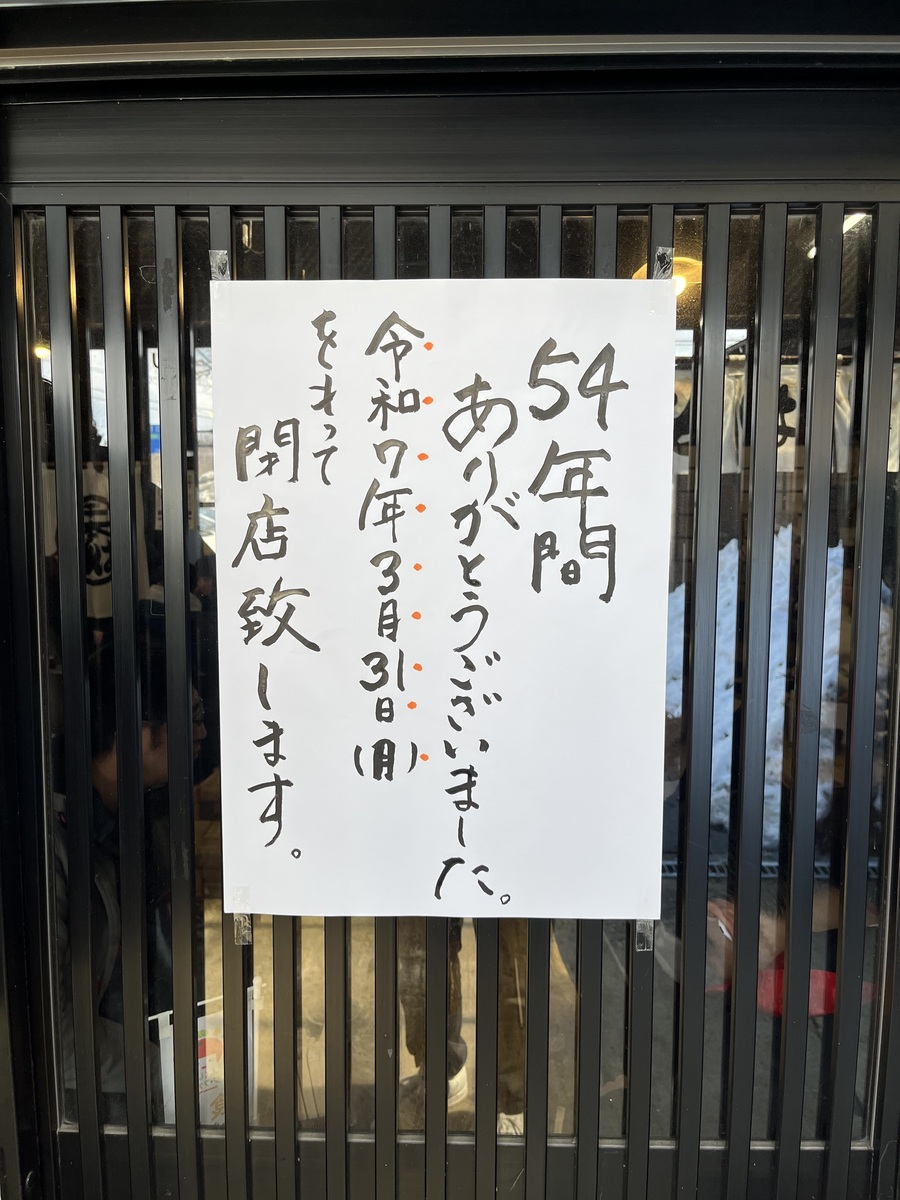 54年間
ありがとうございました。
令和7年3月31日(月)
をもって
閉店致します。